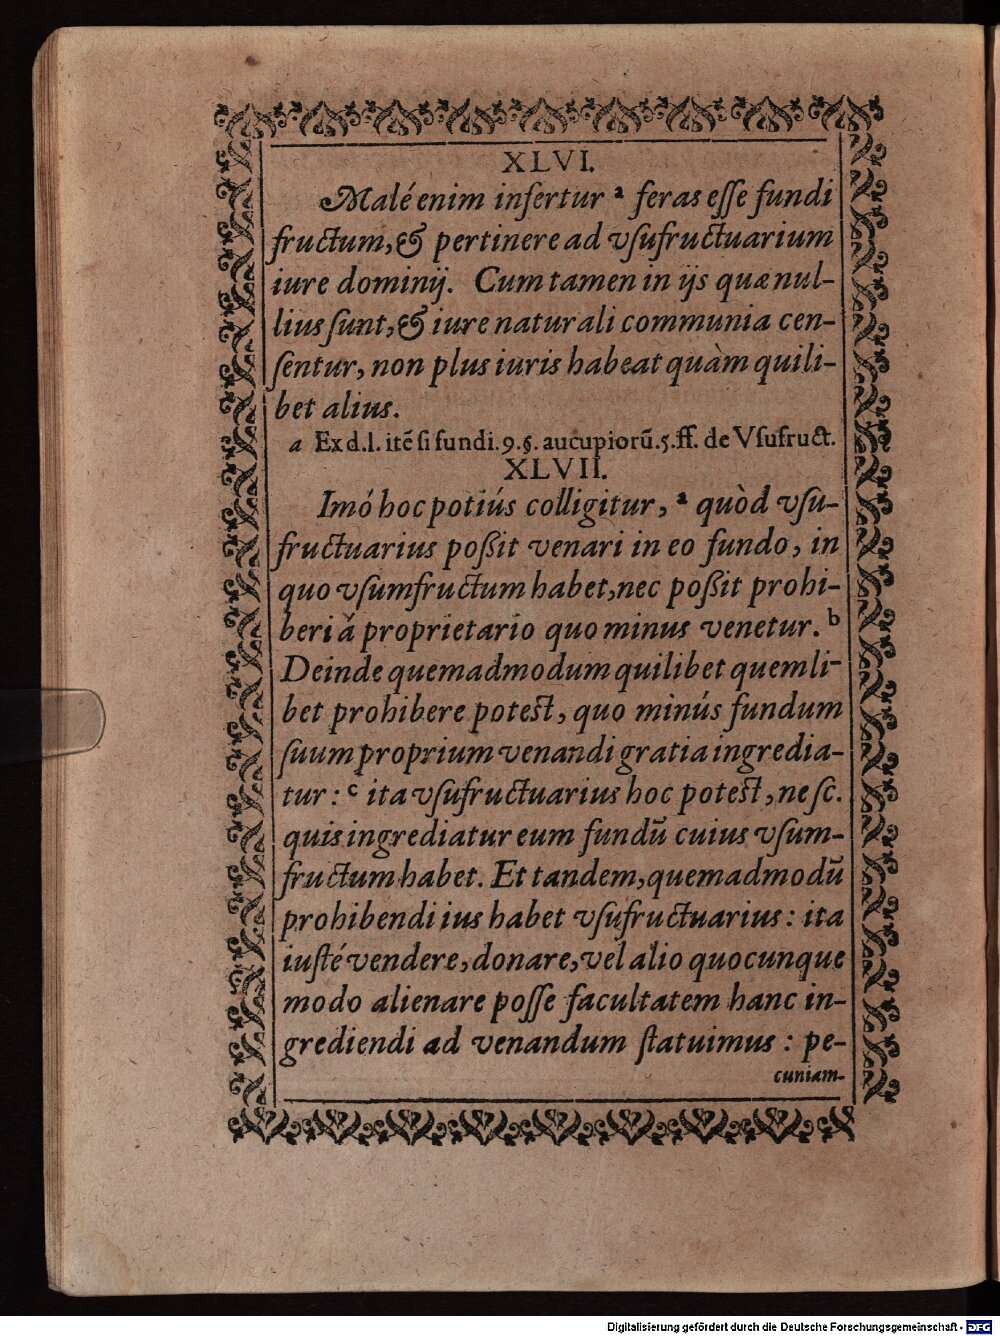 XLVI.
Malé enim infertur ᵃ feras eſſe fundi
fructum, & pertinere ad vſufructuarium
iure dominij. Cum tamen in ijs quæ nul-
lius ſunt, & iure naturali communia cen-
ſentur, non plus iuris habeat quàm quili-
bet alius.
a Ex d.l. itē ſi fundi.9.§. aucupiorū.5.ff. de Vſufruct.
XLVII.
Imó hoc potiús colligitur, ᵃ quòd vſu-
fructuarius poßit venari in eo fundo, in
quo vſumfructum habet, nec poßit prohi-
beri á proprietario quo minus venetur. ᵇ
Deinde quemadmodum quilibet quemli-
bet prohibere poteſt, quo minús fundum
ſuum proprium venandi gratia ingredia-
tur: ᶜ ita vſufructuarius hoc poteſt, ne ſc.
quis ingrediatur eum fundū cuius vſum-
fructum habet. Et tandem, quemadmodū
prohibendi ius habet vſufructuarius: ita
iuſté vendere, donare, vel alio quocunque
modo alienare poſſe facultatem hanc in-
grediendi ad venandum ſtatuimus: pe-
cuniam-
Digitalisierung gefördert durch die Deutsche Forschungsgemeinschaft - DFG